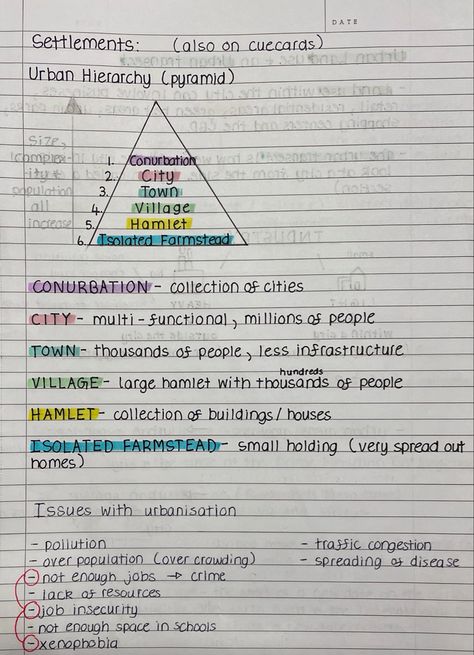 DATE
Settlements: (also on cuecards)
Urban Hierarchy (pyramid)
Size,
complex-
ity +
population
all
increase
1. Conurbation
2. City
3. Town
4. Village
5. Hamlet
6. Isolated Farmstead
CONURBATION - collection of cities
CITY - multi-functional, millions of people
TOWN - thousands of people, less infrastructure
hundreds
VILLAGE - large hamlet with thousands of people
HAMLET - collection of buildings/houses
ISOLATED FARMSTEAD - small holding (very spread out
homes)
Issues with urbanisation
- pollution
- over population (over crowding)
- not enough jobs → crime
- lack of resources
- job insecurity
- not enough space in schools
- xenophobia
- traffic congestion
- spreading of disease